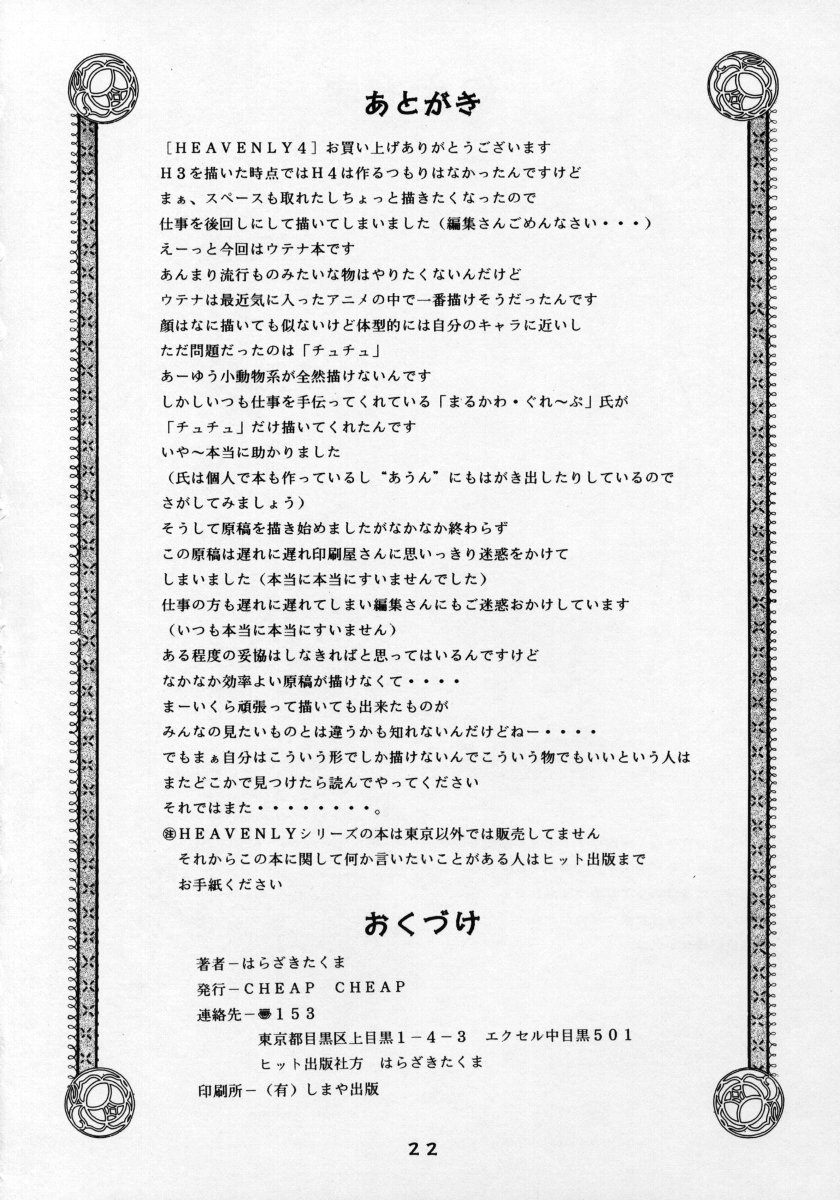 あとがき
［ＨＥＡＶＥＮＬＹ４］お買い上げありがとうございます
Ｈ３を描いた時点ではＨ４は作るつもりはなかったんですけど
まぁ、スペースも取れたしちょっと描きたくなったので
仕事を後回しにして描いてしまいました（編集さんごめんなさい・・・）
えーっと今回はウテナ本です
あんまり流行ものみたいな物はやりたくないんだけど
ウテナは最近気に入ったアニメの中で一番描けそうだったんです
顔はなに描いても似ないけど体型的には自分のキャラに近いし
ただ問題だったのは「チュチュ」
あーゆう小動物系が全然描けないんです
しかしいつも仕事を手伝ってくれている「まるかわ・ぐれ～ぷ」氏が
「チュチュ」だけ描いてくれたんです
いや～本当に助かりました
（氏は個人で本も作っているし“あうん”にもはがき出したりしているので
さがしてみましょう）
そうして原稿を描き始めましたがなかなか終わらず
この原稿は遅れに遅れ印刷屋さんに思いっきり迷惑をかけて
しまいました（本当に本当にすいませんでした）
仕事の方も遅れに遅れてしまい編集さんにもご迷惑おかけしています
（いつも本当に本当にすいません）
ある程度の妥協はしなきればと思ってはいるんですけど
なかなか効率よい原稿が描けなくて・・・・
まーいくら頑張って描いても出来たものが
みんなの見たいものとは違うかも知れないんだけどねー・・・・
でもまぁ自分はこういう形でしか描けないんでこういう物でもいいという人は
またどこかで見つけたら読んでやってください
それではまた・・・・・・・・。
㊟ＨＥＡＶＥＮＬＹシリーズの本は東京以外では販売してません
それからこの本に関して何か言いたいことがある人はヒット出版まで
お手紙ください
おくづけ
著者－はらざきたくま
発行－ＣＨＥＡＰ　ＣＨＥＡＰ
連絡先－〠１５３
東京都目黒区上目黒１－４－３　エクセル中目黒５０１
ヒット出版社方　はらざきたくま
印刷所－（有）しまや出版
２２